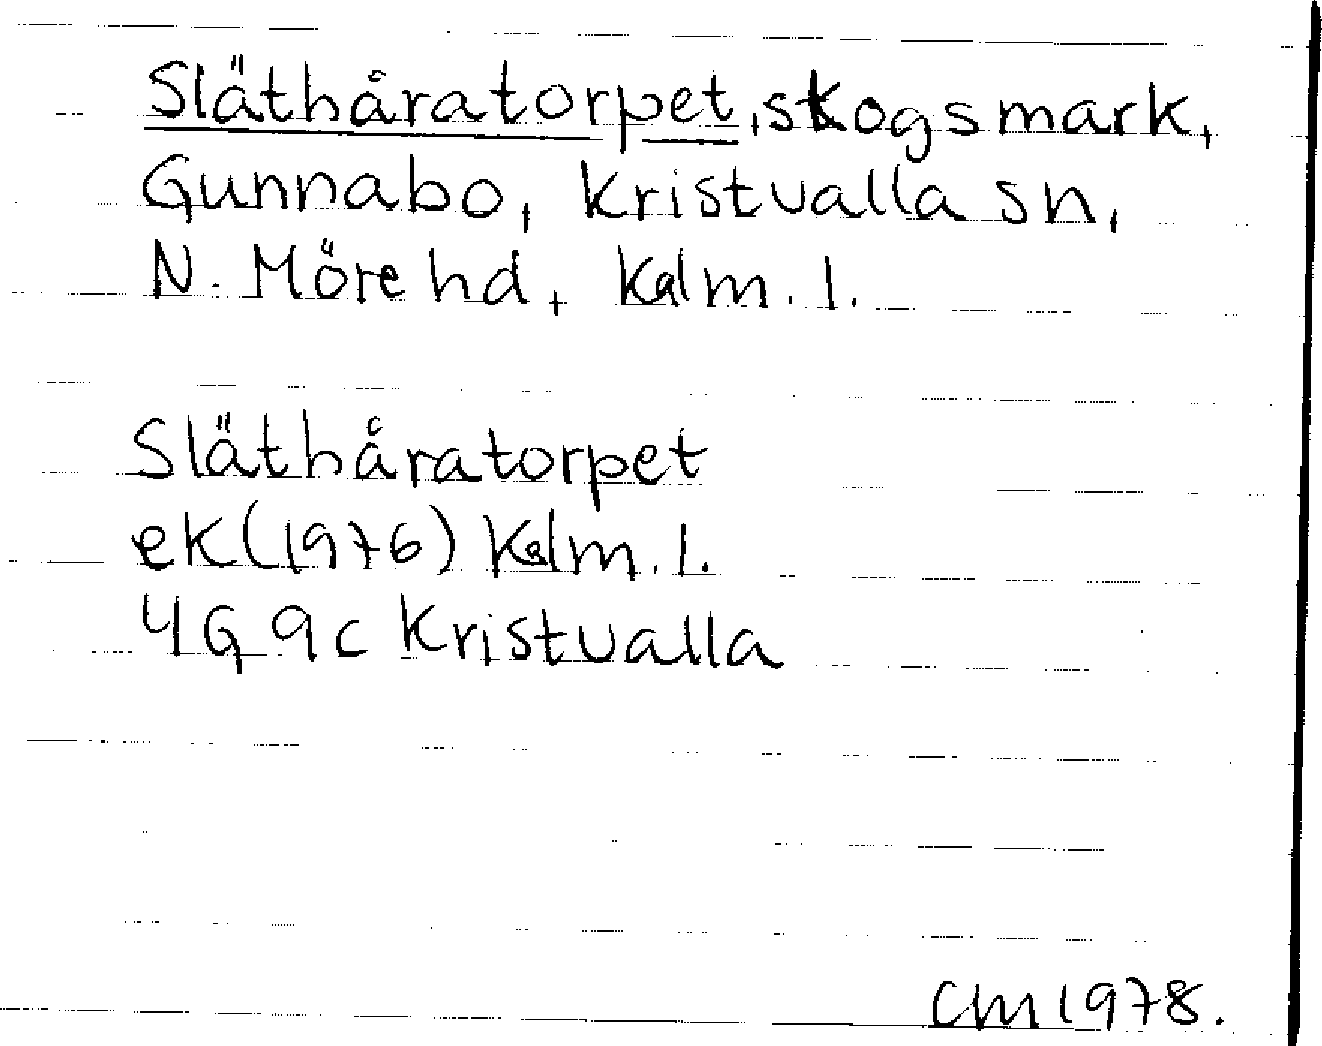 Släthåratorpet, skogsmark,
Gunnabo, Kristvalla sn,
N. Möre hd, Kalm. l.
Släthåratorpet
ek (1976) Kalm. l.
4G 9c Kristvalla
CM 1978.